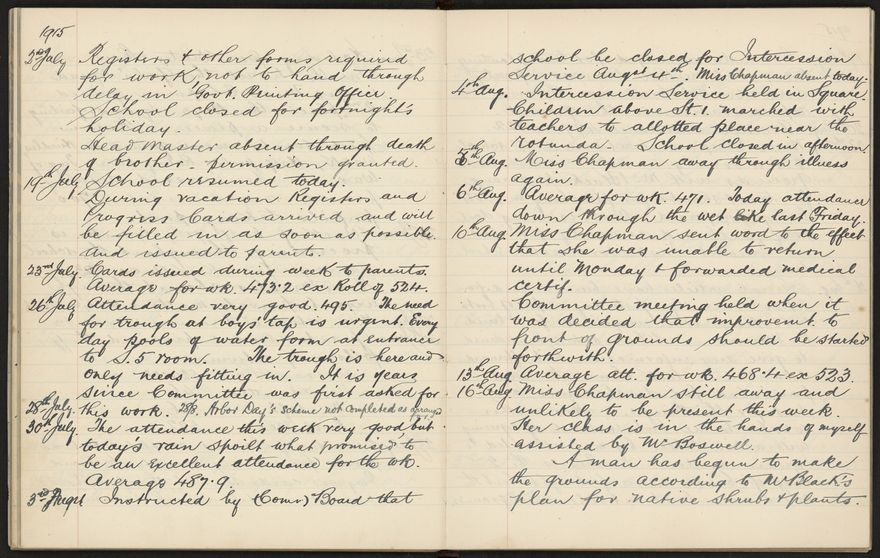 1915
2nd July Registers & other forms required
for work, not to hand through
delay in Govt. Printing Office.
School closed for fortnight's
holiday.
Head Master absent through death
of brother. Permission granted.
19th July School resumed today.
During vacation Registers and
Progress Cards arrived and will
be filled in as soon as possible
and issued to parents.
23rd July. Cards issued during week to parents.
Average for wk. 473.2 ex Roll of 524.
26th July Attendance very good. 495. The need
for trough at boys' tap is urgent. Every
day pools of water form at entrance
to S.5 room. The trough is here and
only needs fitting in. It is years
since Committee was first asked for
28th July. this work. 28/8. Arbor Day's scheme not completed as arranged
30th July. The attendance this week very good but
today's rain spoilt what promised to
be an excellent attendance for the wk.
Average 487.9.
3rd August Instructed by (Comr) Board that
school be closed for Intercession
Service Augst 4th. Miss Chapman absent today.
4th Aug. Intercession Service held in Square.
Children above St. 1. marched with
teachers to allotted place near the
rotunda. School closed in afternoon.
5th Aug Miss Chapman away through illness
again.
6th Aug. Average for wk. 471. Today attendance
down through the wet like last Friday.
10th Aug Miss Chapman sent word to the effect
that she was unable to return
until Monday & forwarded medical
certif.
Committee meeting held when it
was decided that improvemt. to
front of grounds should be started
forthwith.
13th Aug Average att. for wk. 468.4 ex 523.
16th Aug Miss Chapman still away and
unlikely to be present this week.
Her class is in the hands of myself
assisted by Mr Boswell.
A man has begun to make
the grounds according to Mr Black's
plan for native shrubs & plants.